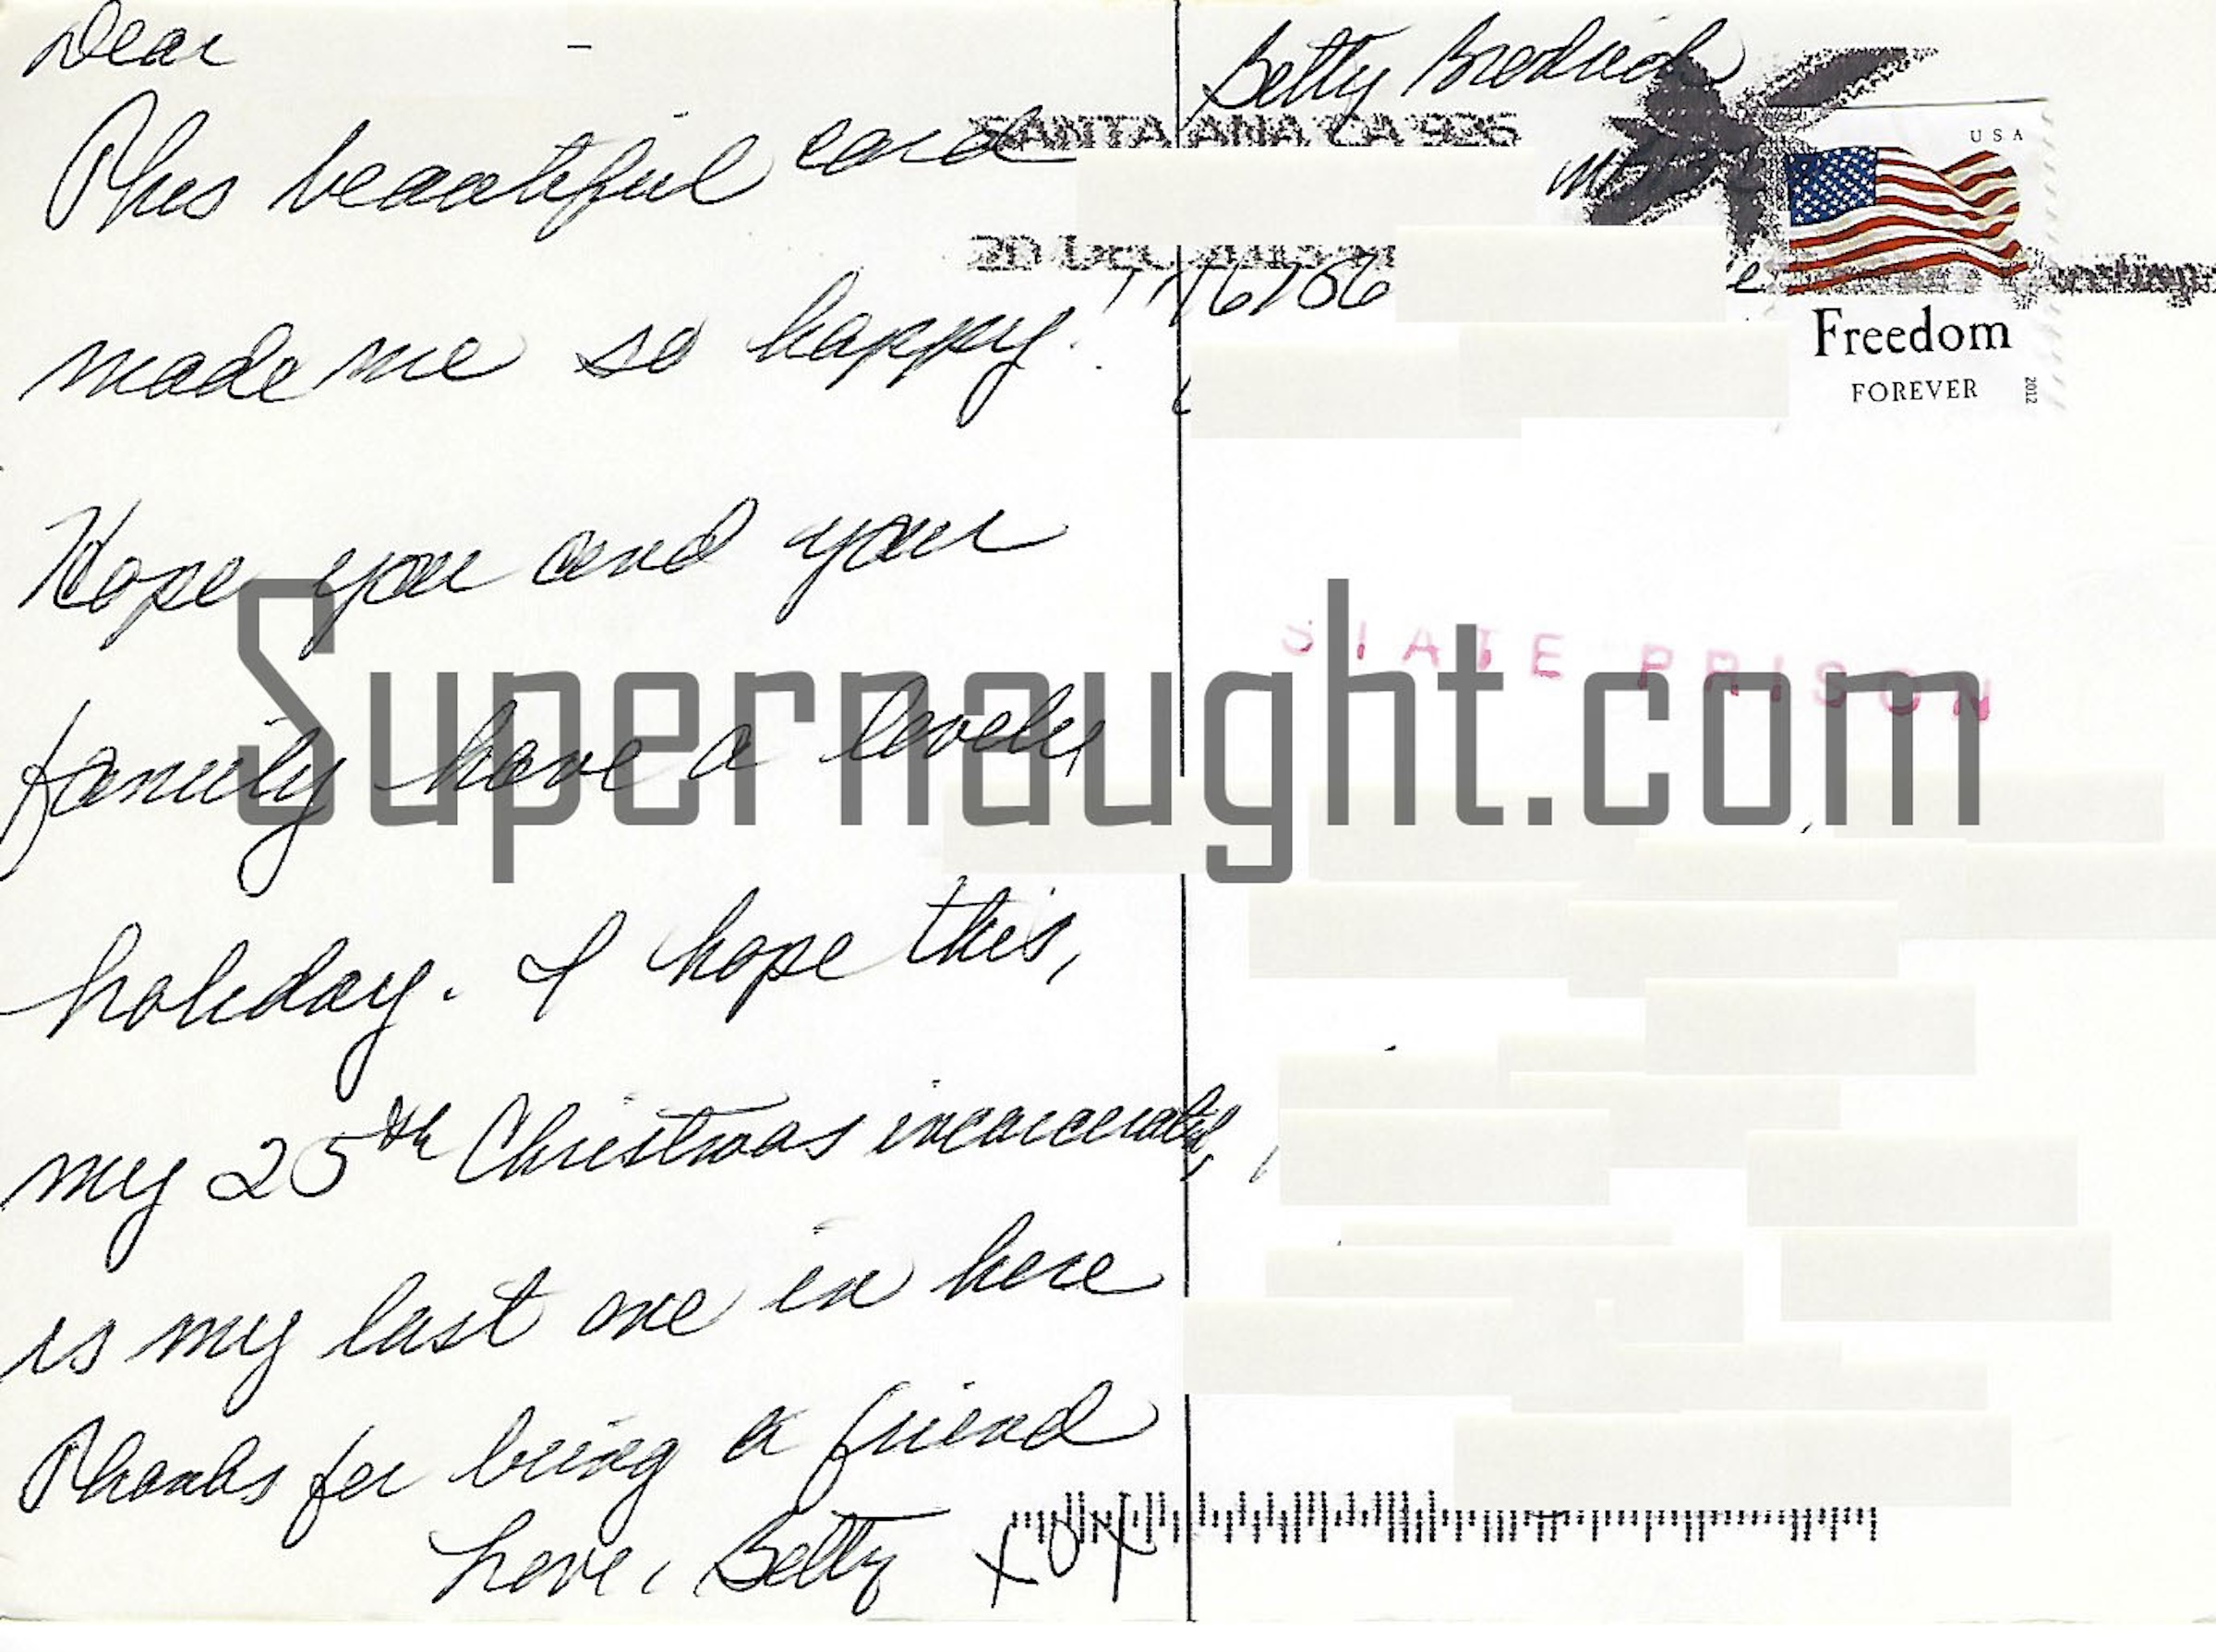 Dear
This beautiful card
made me so happy!
Hope you and your
family have a lovely
holiday. I hope this,
my 25th Christmas incarcerated,
is my last one in here
Thanks for being a friend
Love, Betty XOX
Betty Broderick
SANTA ANA CA 926
20 DEC
USA
Freedom
FOREVER
2012
STATE PRISON
Supernaught.com